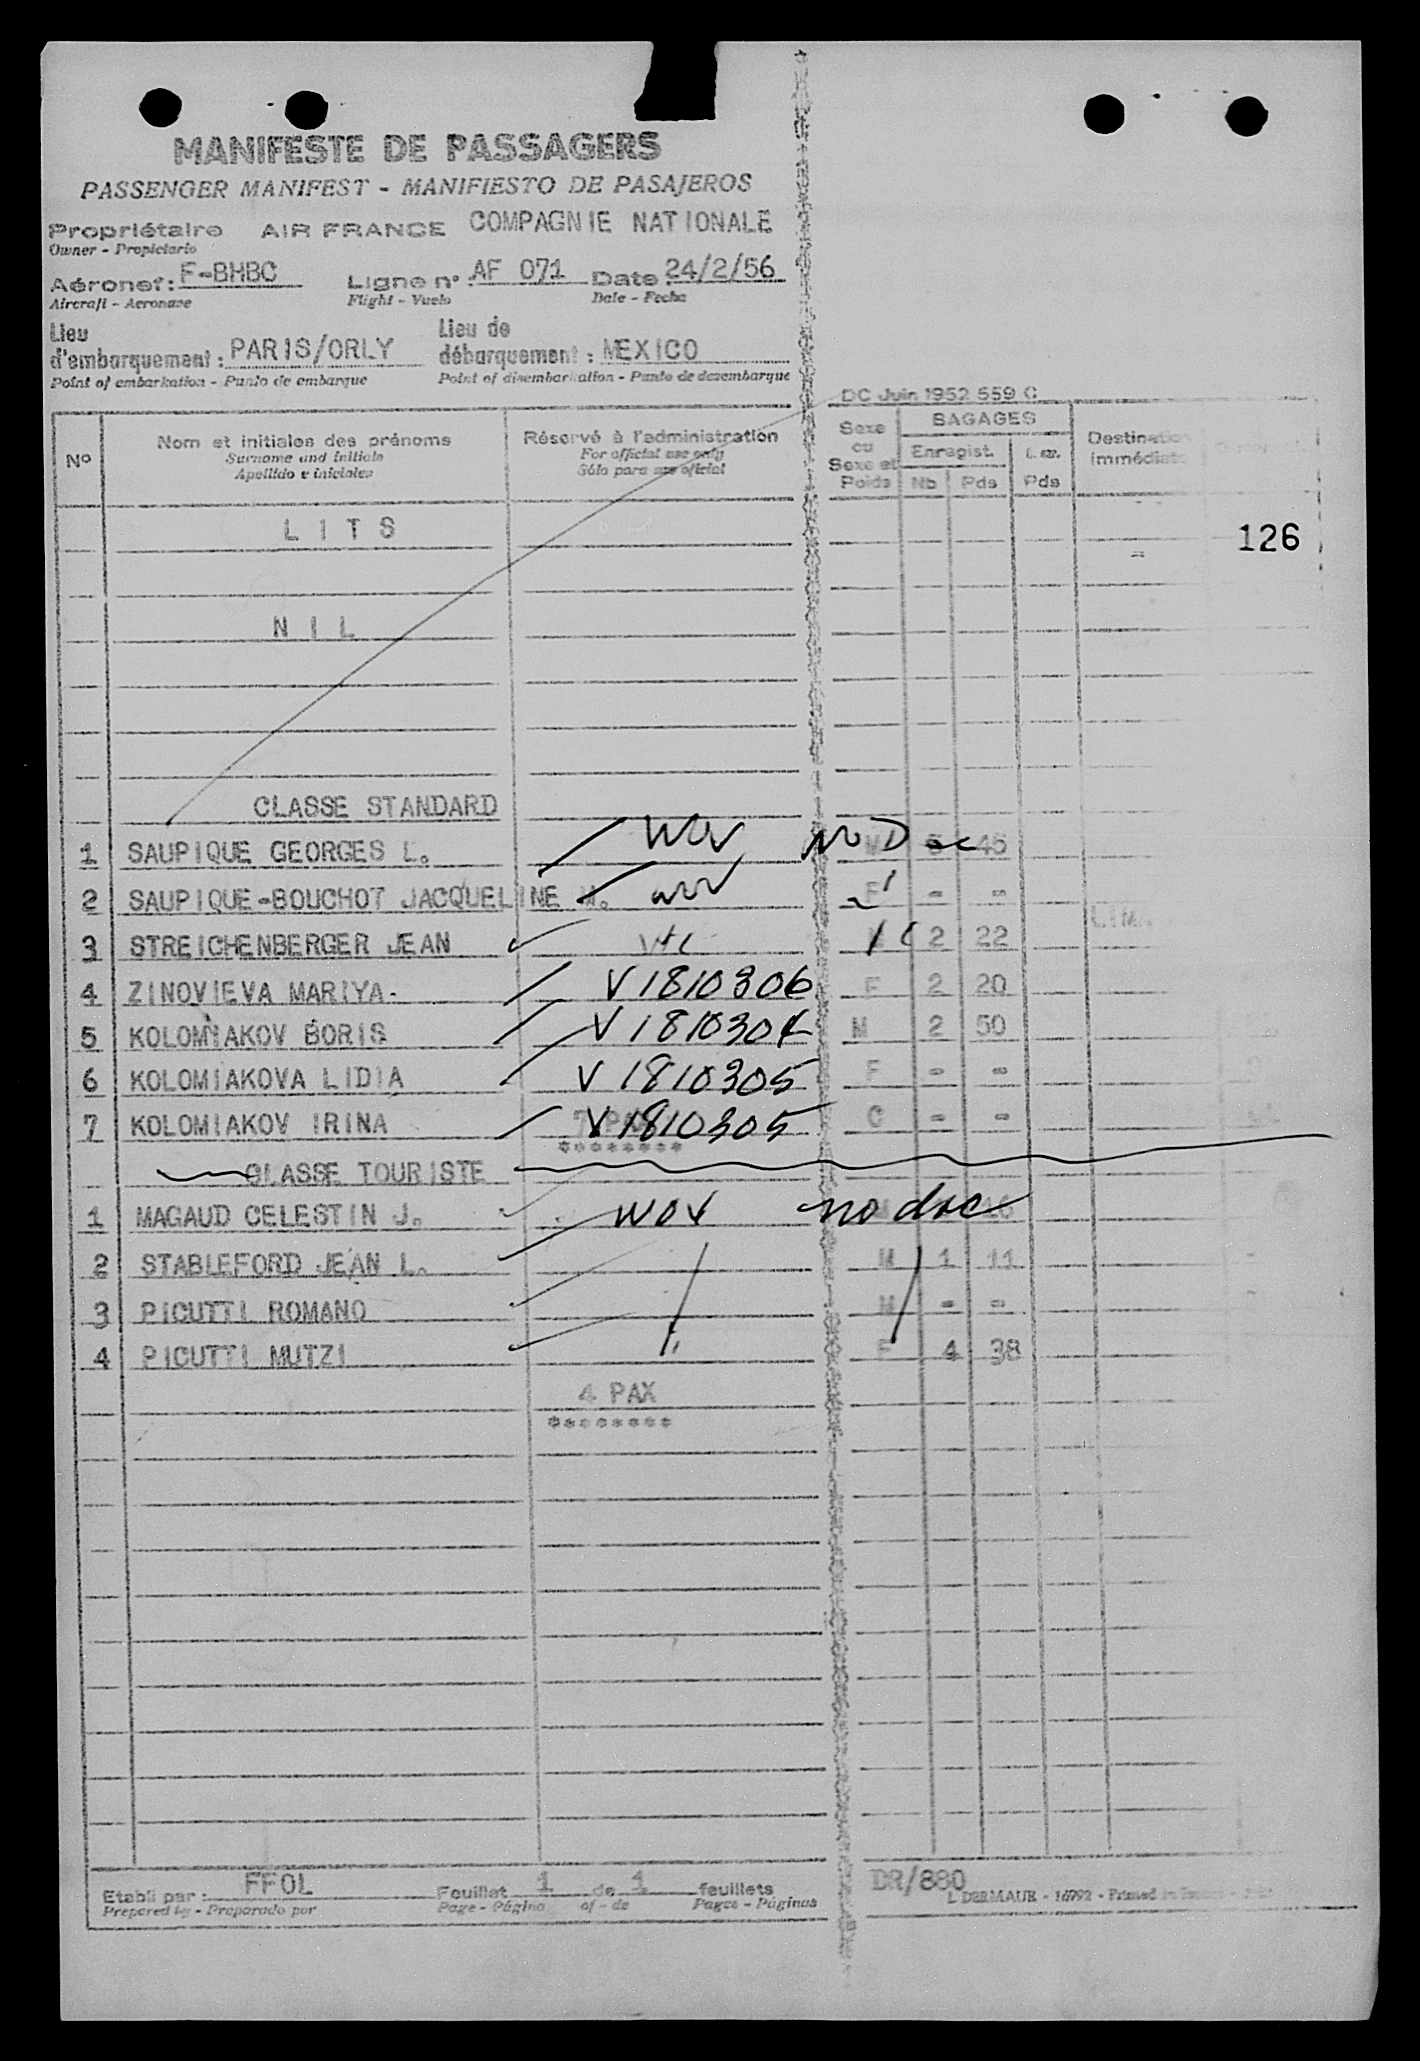 MANIFESTE DE PASSAGERS
PASSENGER MANIFEST - MANIFIESTO DE PASAJEROS
Propriétaire AIR FRANCE COMPAGNIE NATIONALE
Owner - Propietario
Aéronef: F-BHBC Ligne n° AF 071 Date 24/2/56
Aircraft - Aeronave Flight - Vuelo Date - Fecha
Lieu d'embarquement: PARIS/ORLY Lieu de débarquement: MEXICO
Point of embarkation - Punto de embarque Point of disembarkation - Punto de desembarque
DC Juin 1952 559 C
Nº Nom et initiales des prénoms Réservé à l'administration Sexe ou Sexe et Poids BAGAGES Destination immédiate
Surname and initials For official use only Enregist.
Apellido e iniciales Sólo para uso oficial Nb Pds Pds
LITS
126
NIL
CLASSE STANDARD
1 SAUPIQUE GEORGES L. WOV NO Doc M 45
2 SAUPIQUE-BOUCHOT JACQUELINE WOV F - -
3 STREICHENBERGER JEAN 2 22
4 ZINOVIEVA MARIYA- V1810306 F 2 20
5 KOLOMIAKOV BORIS V1810304 M 2 50
6 KOLOMIAKOVA LIDIA V1810305 F - -
7 KOLOMIAKOV IRINA 7 PAX V1810305 C - -
********
CLASSE TOURISTE
1 MAGAUD CELESTIN J. WOV no doc
2 STABLEFORD JEAN L. M 1 11
3 PICUTTI ROMANO M - -
4 PICUTTI MUTZI F 4 38
4 PAX
********
Etabli par: FFOL Feuillet 1 de 1 feuillets DR/880
Prepared by - Preparado por Page - Página of - de Pages - Páginas L DERMAUX - 16792 - Printed in